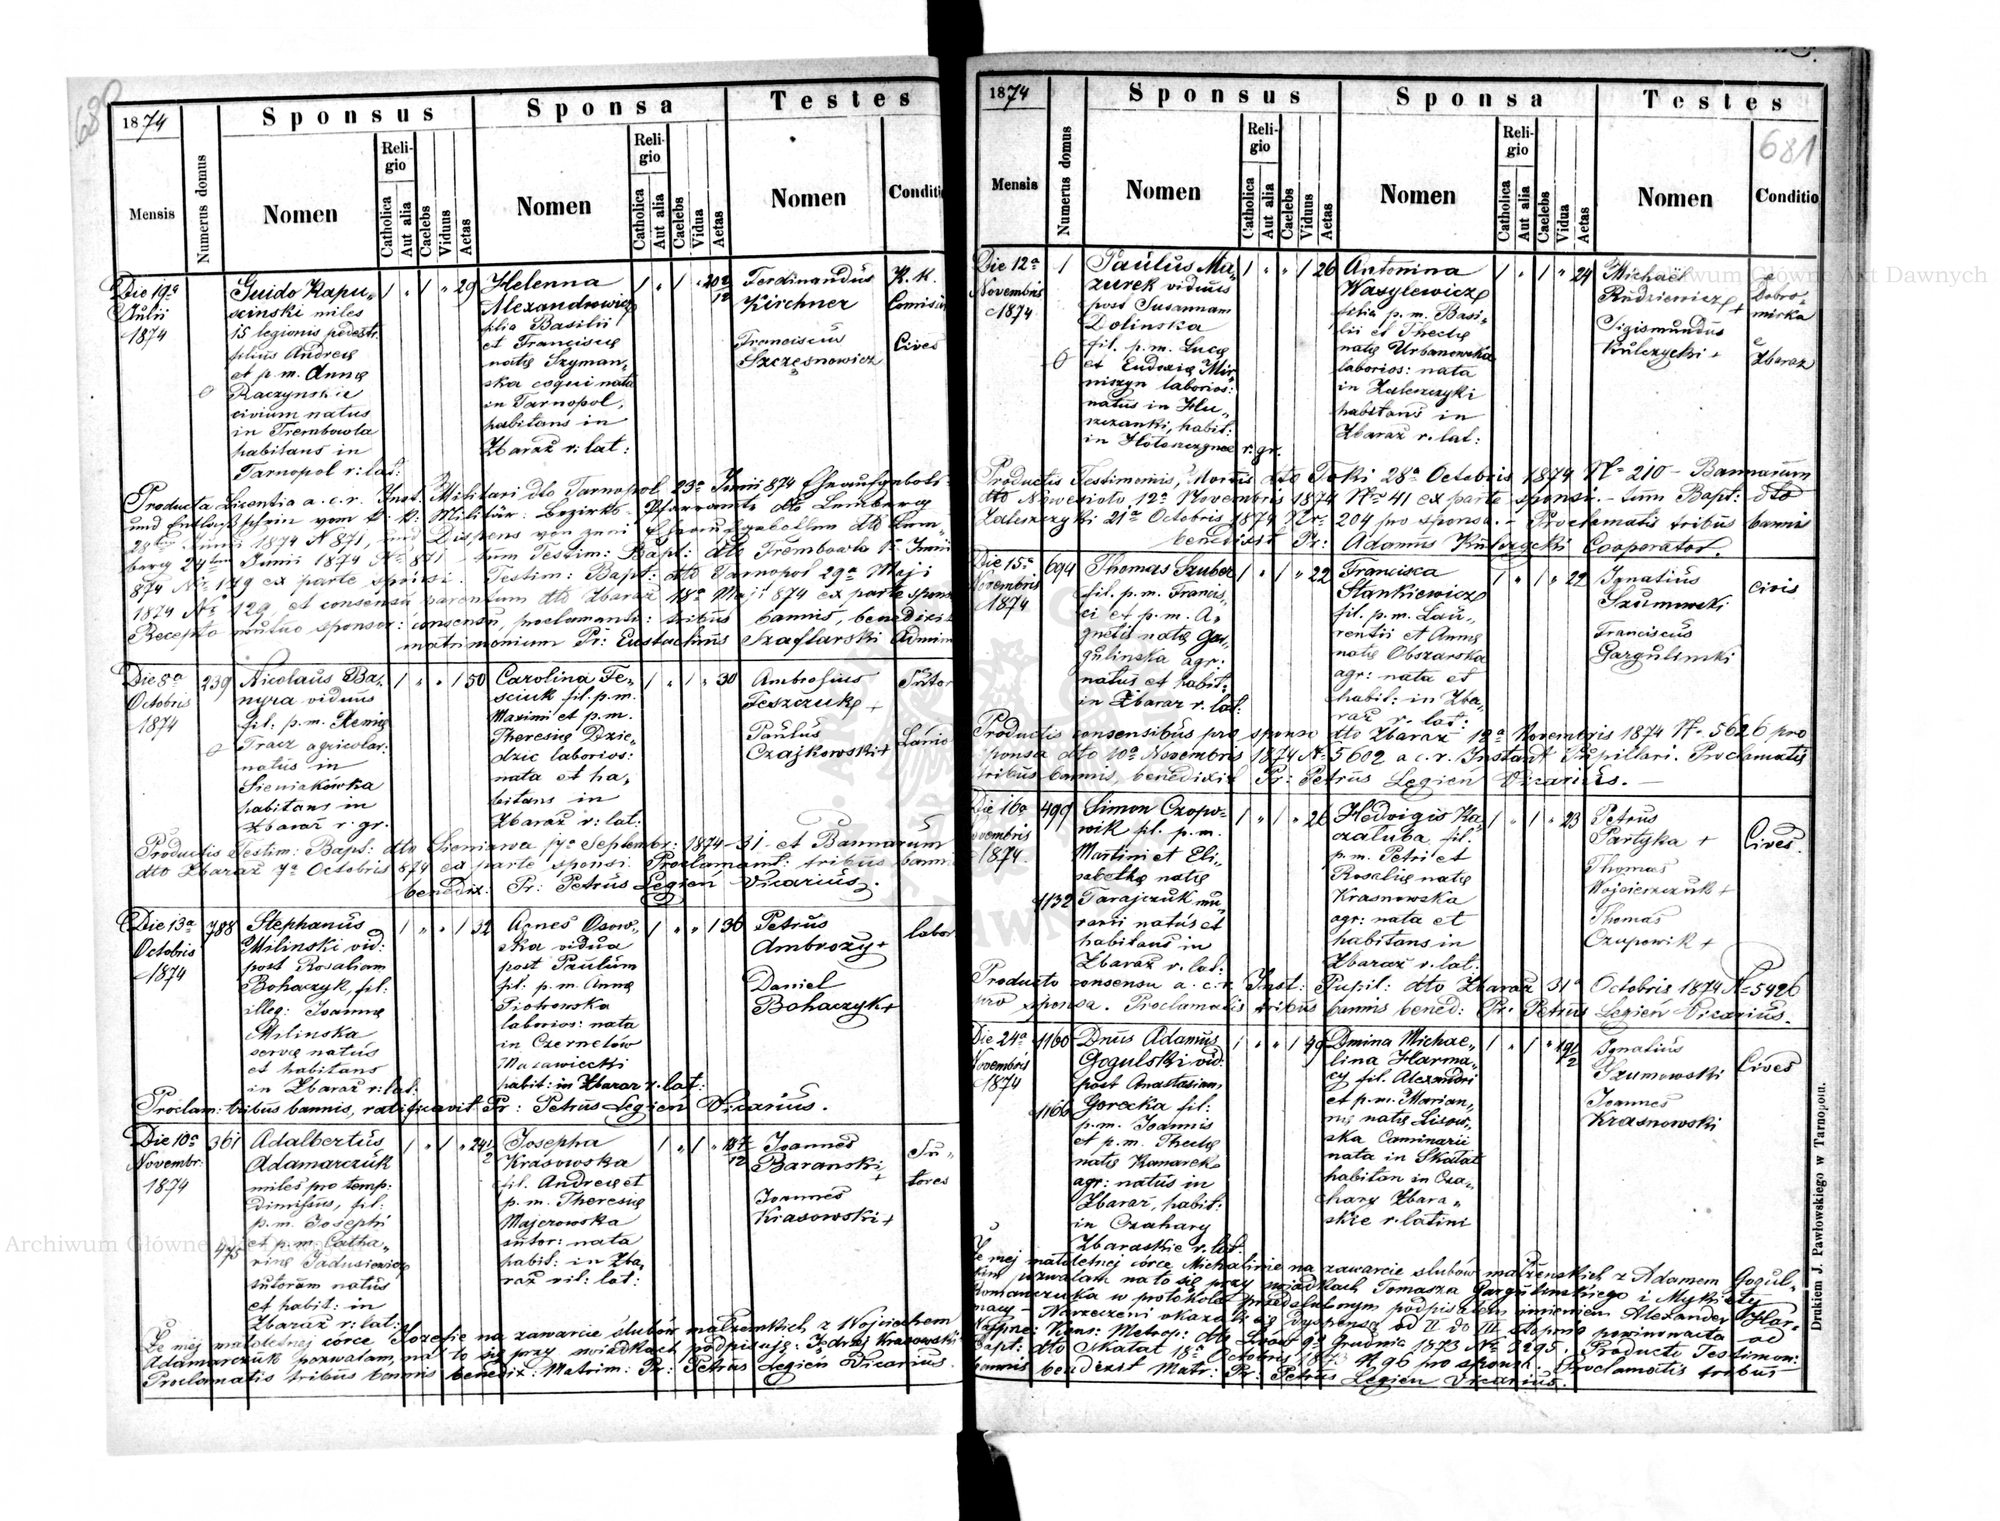 680
1874
Sponsus
Sponsa
Testes
Mensis
Numerus domus
Nomen
Religio
Catholica
Aut alia
Caelebs
Viduus
Aetas
Nomen
Religio
Catholica
Aut alia
Caelebs
Vidua
Aetas
Nomen
Conditio
Die 19a
Julii
1874
Guido Kapu„
scinski miles
15 legionis pedestr.
filius Andreę
et p.m. Annę
Raczynskie
civium natus
in Trembowla
habitans in
Tarnopol r: lat:
1 „ 1 „ 29
Helenna
Alexandrowicz
filia Basilii
et Franciscę
natę Szyman„
ska coqui nata
in Tarnopol,
habitans in
Zbaraż r: lat:
1 „ 1 „ 20 2/12
Ferdinandus
Kirchner
Franciscus
Szczęsnowicz
K. K.
Comisar
Cives
Producta Licentia a. c. r. Inst. Militari dto Tarnopol 23a Junii 874 Eheaufgebots-
und Entlaßschein vom K. K. Militär. Bezirks. Pfarramte dto Lemberg
28ten Junii 1874 N 871, und Dispens von zwei Eheaufgeboten dto Lem„
berg 24ten Junii 1874 No 871 – tum Testim: Bapt: dto Trembowla 1a Junii
874 No 179 ex parte sponsi. Testim: Bapt: dto Tarnopol 29a Maji
1874 No 129, et consensu parentum dto Zbaraż 18a Maji 874 ex parte spons
Recepto mutuo sponsor: consensu, proclamanti: tribus bannis, benedixit
matrimonium Pr: Eustachius Szaflarski Admin
Die 8a
Octobris
1874
239
Nicolaus Ba„
nyra viduus
fil. p.m. Xenię
Tracz agricolar:
natus in
Sieniakówka
habitans in
Zbaraż r. gr.
1 „ „ 1 50
Carolina Te„
sciuk fil. p.m.
Maximi et p.m.
Theresię Dzie„
dzic laborios:
nata et ha„
bitans in
Zbaraż r: lat:
1 „ 1 „ 30
Ambrosius
Teszczuk +
Paulus
Czajkowski +
Sutor
Lanio
Productis Testim: Bapt: dto Sieniawa 17a Septembr: 1874–31– et Bannarum
dto Zbaraż 7a Octobris 874 ex parte sponsi. Proclamant: tribus bannis
benedix: Pr: Petrus Legień Vicarius.
Die 13a
Octobris
1874
788
Stephanus
Milinski vid:
post Rosaliam
Bohaczyk, fil.
illeg: Joannę
Milinska
servę natus
et habitans
in Zbaraż r: lat:
1 „ „ 1 32
Agnes Osow„
ska vidua
post Paulum
fil. p.m. Annę
Piotrowska
laborios: nata
in Czernelów
Mazawiecki
habit: in Zbaraż r. lat:
1 „ „ 1 36
Petrus
Ambroży +
Daniel
Bohaczyk +
labor
Proclam: tribus bannis, ratificavit Pr: Petrus Legień Vicarius.
Die 10a
Novembr:
1874
361
475
Adalbertus
Adamarczuk
miles pro temp:
dimissus, fil.
p.m. Josephi
et p.m. Catha„
rinę Jadusiewicz
sutorum natus
et habit: in
Zbaraż r: lat:
1 „ 1 „ 24 1/2
Josepha
Krasowska
fil. Andreę et
p.m. Theresię
Majerowska
sutor: nata
habit: in Zba„
raż rit: lat:
1 „ 1 „ 18 7/12
Joannes
Baranski
+
Joannes
Krasowski +
Su„
tores
Że mej małoletnej córce Józefie na zawarcie ślubów małżenskich z Wojciechem
Adamarczuk pozwalam, na to się przy swiadkach podpisuję: Jędrzej Krasowski
Proclamatis tribus bannis benedix: Matrim: Pr: Petrus Legień Vicarius.
681
1874
Sponsus
Sponsa
Testes
Mensis
Numerus domus
Nomen
Religio
Catholica
Aut alia
Caelebs
Viduus
Aetas
Nomen
Religio
Catholica
Aut alia
Caelebs
Vidua
Aetas
Nomen
Conditio
Die 12a
Novembris
1874
1
Paulus Ma„
zurek viduus
post Susannam
Dolinska
fil. p.m. Lucę
et Eudoxię Mir„
niszyn laborios:
natus in Hlu„
szczanki, habit:
in Hołoszynce r. gr.
1 „ „ 1 26
Antonina
Wasylewicz
filia p.m. Basi„
lii et Theclę
natę Urbanowska
laborios: nata
in Zaleszczyki
habitans in
Zbaraż r. lat:
1 „ 1 „ 24
Michaël
Rudzienicz +
Sigismundus
Kulczycki +
e
Dobro„
mirka
e
Zbaraz
Productis Testimoniis, Mortis dto Toki 28a Octobris 1874 No 210 – Bannarum
dto Nowesioło 12a Novembris 1874 No 41 ex parte sponsi. – tum Bapt: dto
Zaleszczyki 21a Octobris 1874 Nr. 204 pro sponsa. – Proclamatis tribus bannis
benedixit Pr: Adamus Kulczycki Cooperator.
Die 15a
Novembris
1874
694
Thomas Szuber
fil. p.m. Francis„
ci et p.m. A„
gnetis natę Gar„
gulinska agr:
natus et habit:
in Zbaraż r. lat:
1 „ 1 „ 22
Francisca
Stankiewicz
fil. p.m. Lau„
rentii et Annę
natę Obszarska
agr: nata et
habit: in Zba„
raż r. lat:
1 „ 1 „ 22
Ignatius
Szumowski
Franciscus
Gargulinski
civis
Productis consensibus pro sponso dto Zbaraż 12a Novembris 1874 N. 5626 pro
sponsa dto 10a Novembris 1874 No 5602 a c. r. Instant Pupillari. Proclamatis
tribus bannis, benedixit Pr: Petrus Legień Vicarius. –
Die 16a
Novembris
1874
499
1132
Simon Czopo„
wik fil. p.m.
Martini et Eli„
sabethę natę
Tarajczuk mu„
rarii natus et
habitans in
Zbaraż r. lat:
1 „ 1 „ 26
Hedvigis Ka„
załuba fil.
p.m. Petri et
Rosalię natę
Krasnowska
agr: nata et
habitans in
Zbaraż r. lat:
1 „ 1 „ 23
Petrus
Partyka +
Thomas
Wojcieszczuk +
Thomas
Czupowik +
Cives.
Producto consensu a. c. r. Inst: Pupil: dto Zbaraż 31a Octobris 1874 No 5426
pro sponsa. Proclamatis tribus bannis bened: Pr. Petrus Legień Vicarius.
Die 24a
Novembris
1874
1160
1166
Dnus Adamus
Gogulski vid:
post Anastasiam
Gorecka fil:
p.m. Joannis
et p.m. Theclę
natę Komarek
agr: natus in
Zbaraż, habit:
in Czahary
Zbaraskie r. lat.
1 „ „ 1 49
Dmina Michae„
lina Harma„
cy fil. Alexandri
et p.m. Marian„
nę natę Lisow„
ska Caminarii
nata in Skałat
habitan in Cza„
hary Zbara„
skie r. latini
1 „ 1 „ 19 1/2
Ignatius
Szumowski
Joannes
Krasnowski
Cives
Że mej małoletnej córce Michalinie na zawarcie slubów małżenskich z Adamem Gogul„
skim pozwalam na to się przy swiadkach Tomasza Gargulinskiego i Mykiety
Romanczuka w protokole przedslubnym podpisałem imieniem Alexander Har„
macy – Narzeczeni okazali się dyspensą od II do III stopnia powinowactwa od
Najprze: Kons: Metrop: dto Lwów 9a Grudnia 1873 No 3295. Producto Testimon:
Bapt: dto Skałat 18a Octobris 1873 N. 96 pro sponsa. Proclamatis tribus
bannis benedixit Matr: Pr: Petrus Legień Vicarius.
Drukiem J. Pawłowskiego w Tarnopolu.
Archiwum Główne Akt Dawnych
Archiwum Główne Akt Dawnych